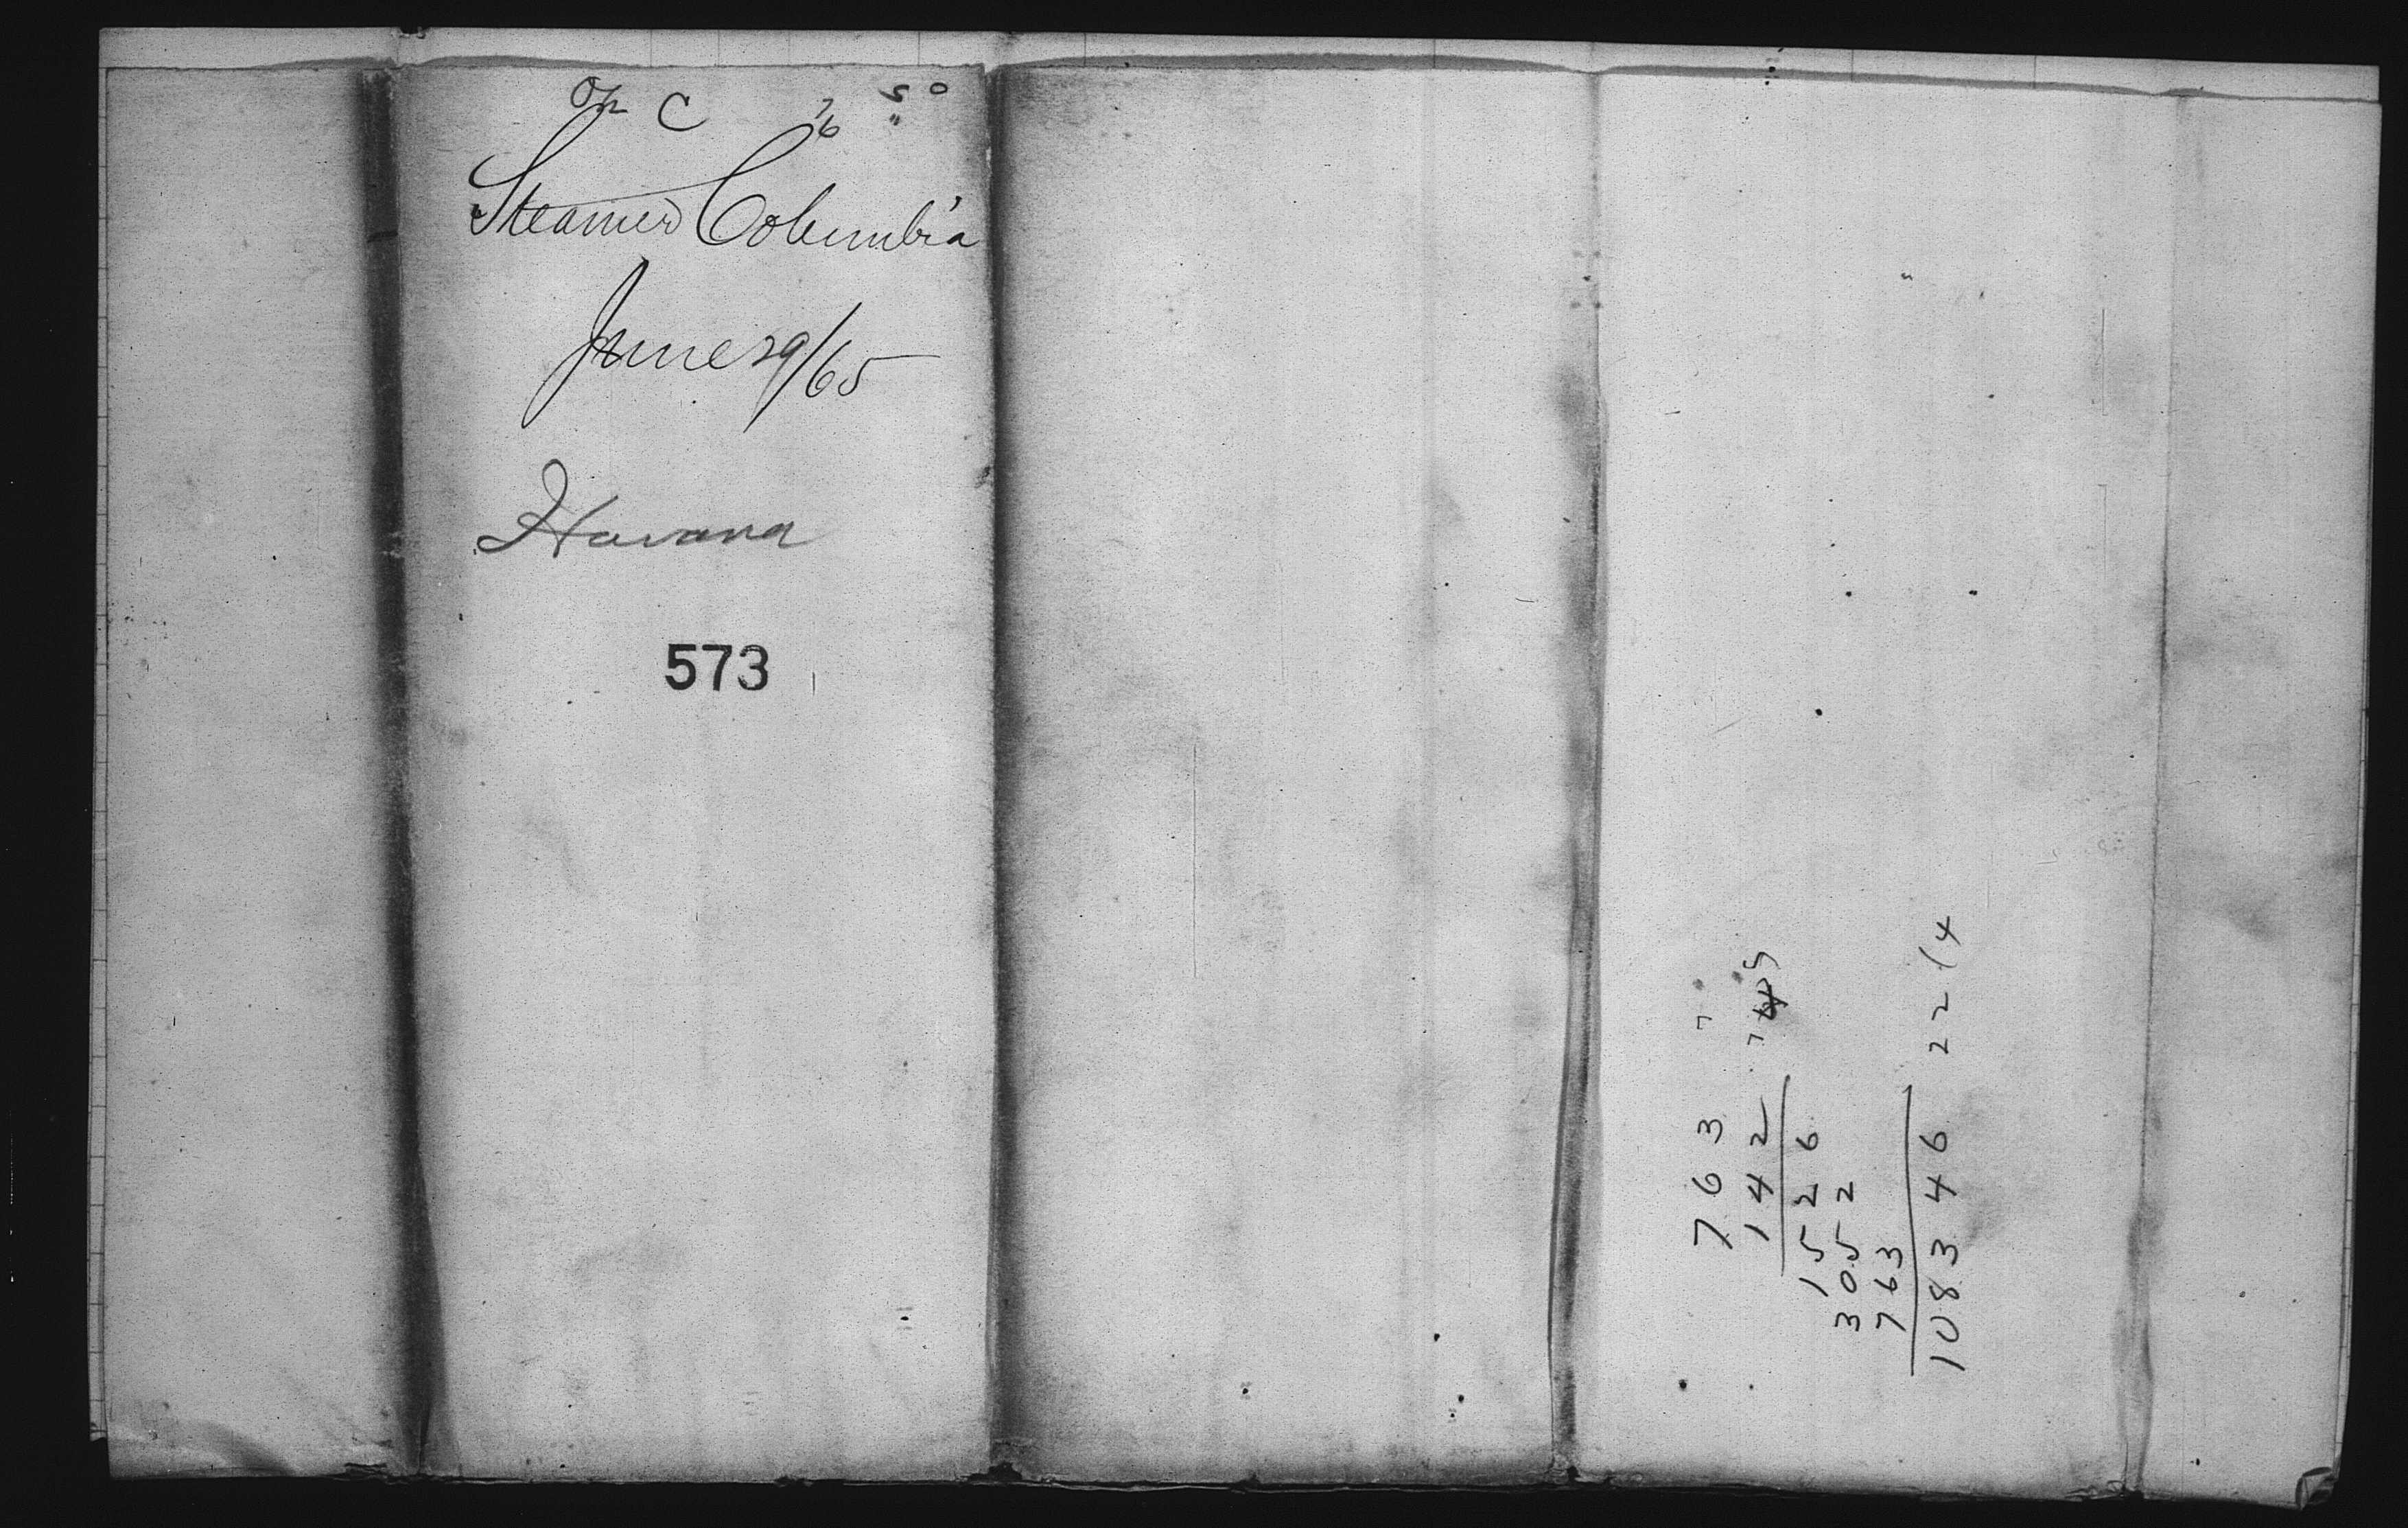 C 76 50
Steamer Columbia
June 29/65
Havana
573
763 7
142 7 5
1526
3052
763
108346 22 (4